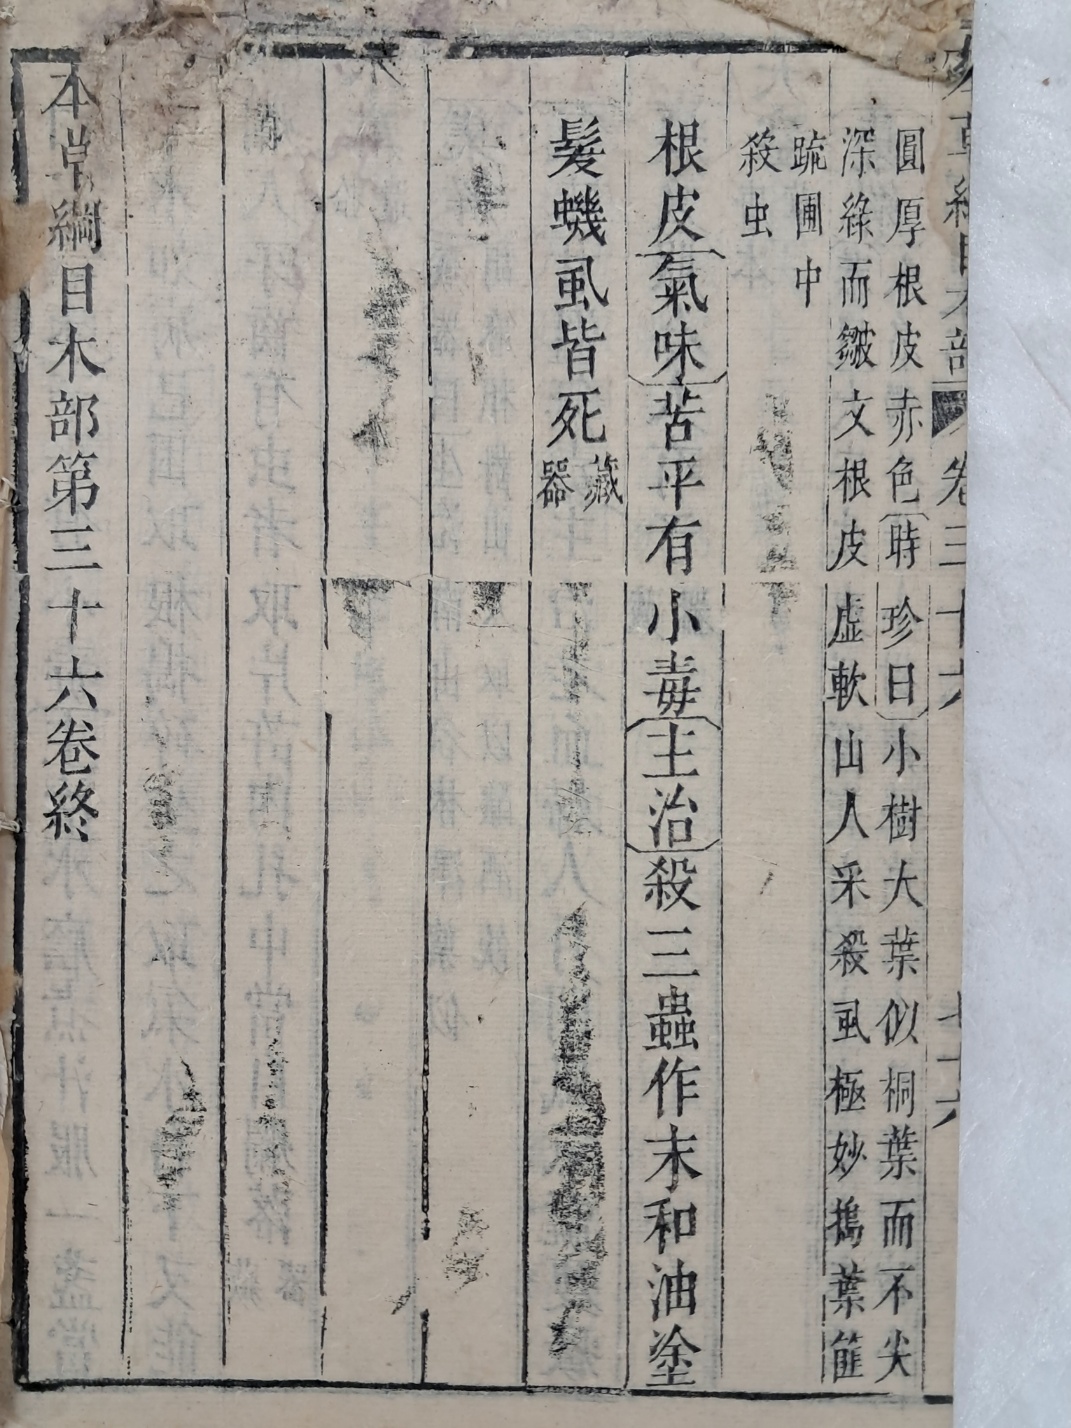 圓厚根皮赤色〔時珍曰〕小樹大葉似桐葉而不尖
深綠而皺文根皮虛軟山人采殺虱極妙搗葉篩
疏圃中
殺虫
根皮〔氣味〕苦平有小毒〔主治〕殺三蟲作末和油塗
髮蟣虱皆死藏
器
本草綱目木部第三十六卷終